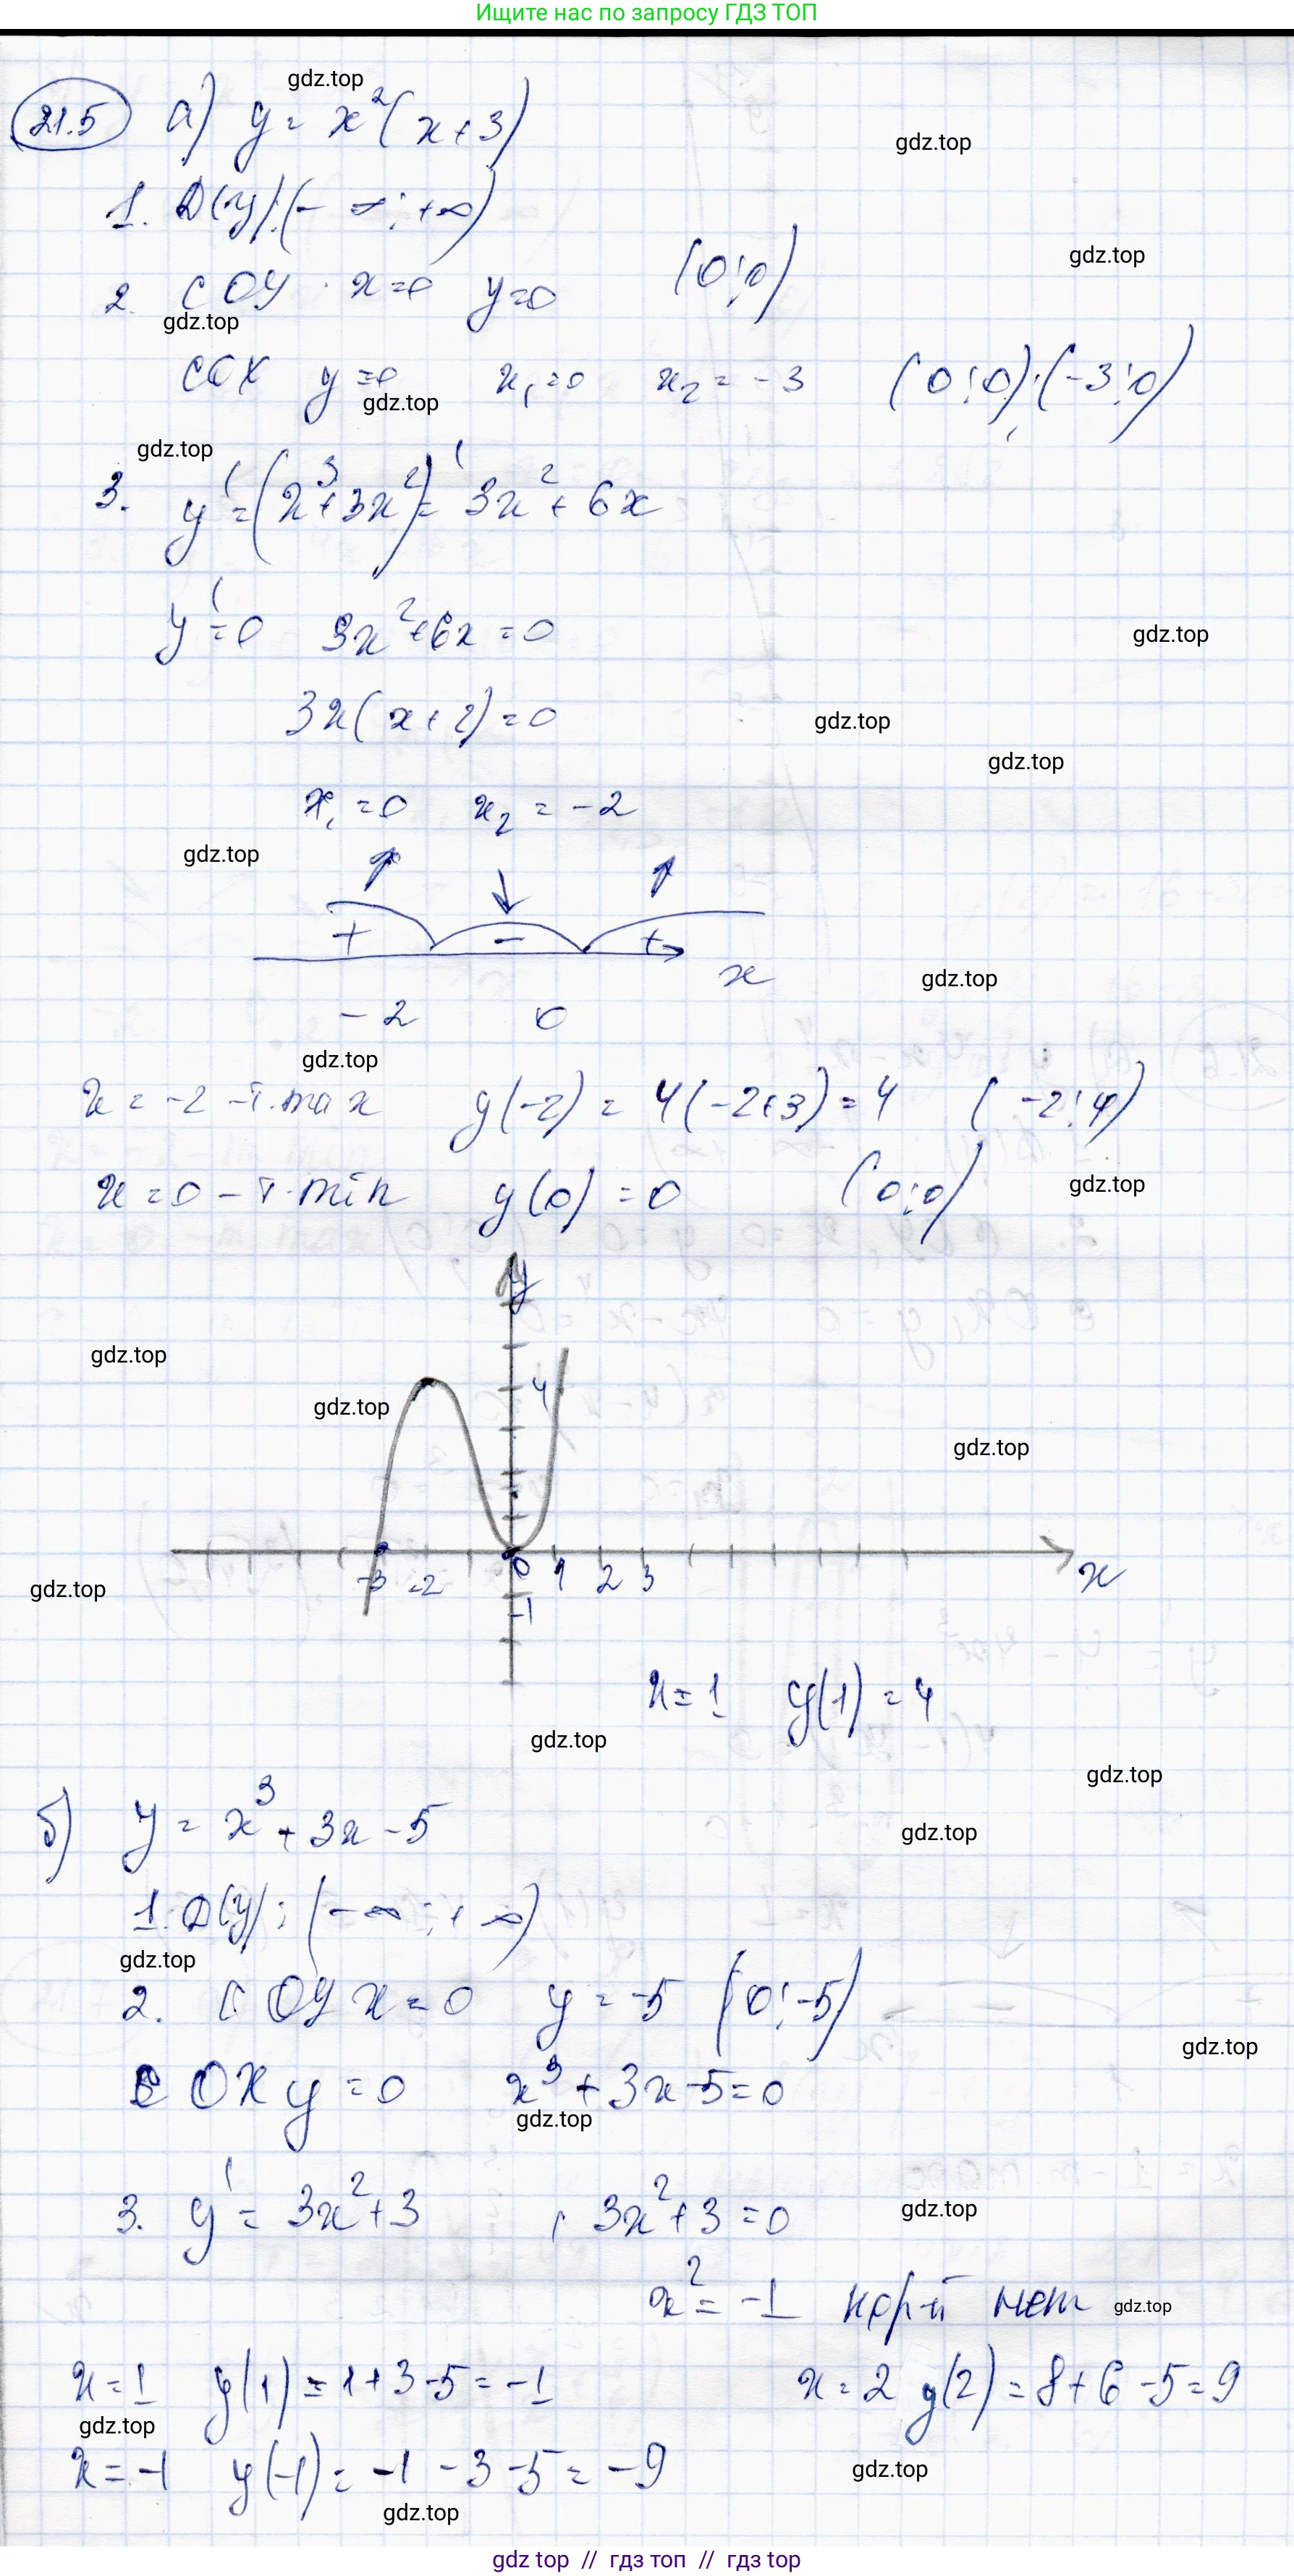 Ищите нас по запросу ГДЗ ТОП
gdz.top
21.5 а) y = x²(x+3)
gdz.top
1. D(y): (-∞; +∞)
gdz.top
2. с OY x=0 y=0 (0;0)
gdz.top
с OX y=0 x₁=0 x₂=-3 (0;0); (-3;0)
gdz.top
gdz.top
3. y' = (x³+3x²)' = 3x²+6x
y'=0 3x²+6x=0
gdz.top
3x(x+2)=0
gdz.top
gdz.top
x₁=0 x₂=-2
gdz.top
+ - +
x
gdz.top
-2 0
gdz.top
x=-2 -т.max y(-2) = 4(-2+3)=4 (-2;4)
x=0 -т.min y(0)=0 (0;0)
gdz.top
y
gdz.top
4
gdz.top
gdz.top
-3 -2 0 1 2 3 x
gdz.top
-1
x=1 y(1)=4
gdz.top
gdz.top
б) y = x³+3x-5
gdz.top
1. D(y): (-∞; +∞)
gdz.top
2. с OY x=0 y=-5 (0;-5)
gdz.top
с OX y=0 x³+3x-5=0
gdz.top
3. y' = 3x²+3 , 3x²+3=0
gdz.top
x²=-1 корн-й нет
gdz.top
x=1 y(1)=1+3-5=-1 x=2 y(2)=8+6-5=9
gdz.top
x=-1 y(-1)=-1-3-5=-9
gdz.top
gdz.top
gdz top // гдз топ // гдз top